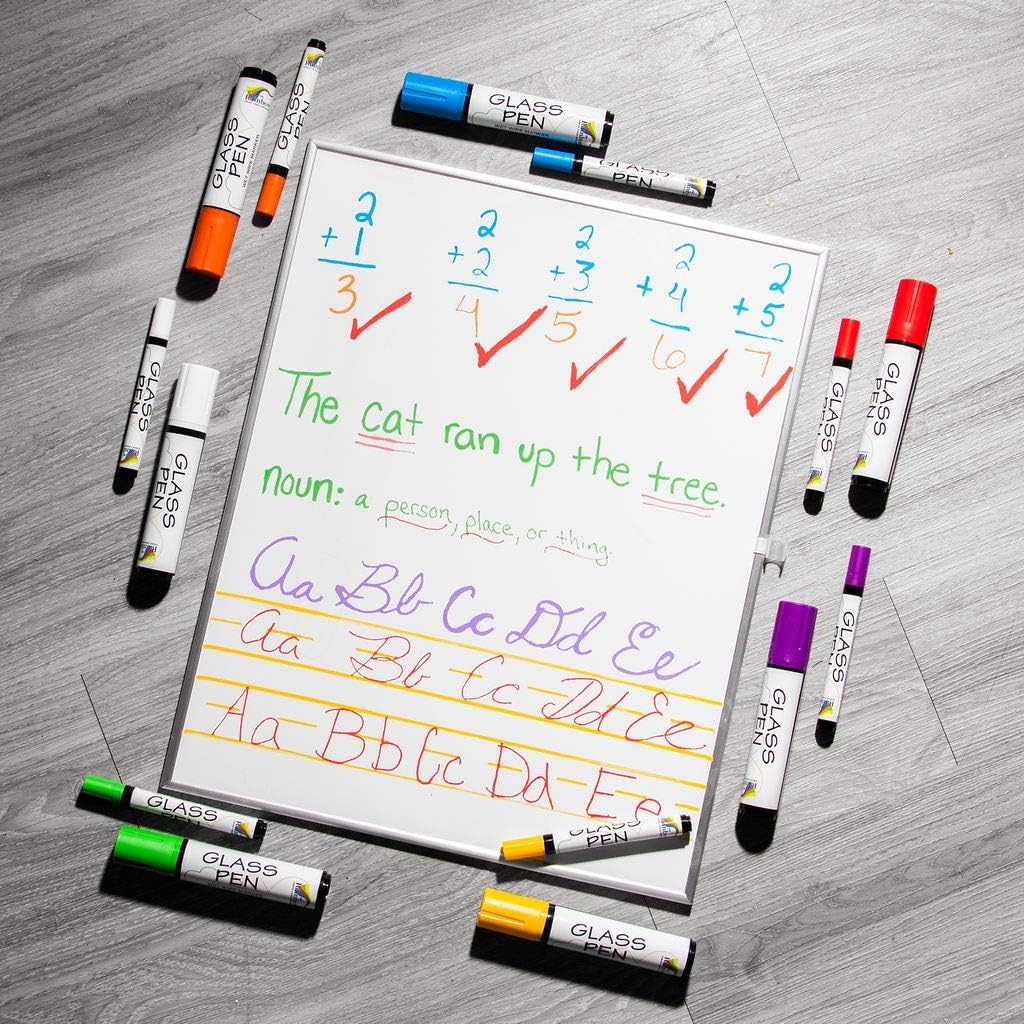 GLASS PEN
WET WIPE MARKER
GLASS PEN
GLASS PEN
WET WIPE MARKER
GLASS PEN
2 2 2 2 2
+1 +2 +3 +4 +5
3 4 5 6 7
The cat ran up the tree.
noun: a person, place, or thing.
Aa Bb Cc Dd Ee
Aa Bb Cc Dd Ee
Aa Bb Cc Dd Ee
GLASS PEN
GLASS PEN
GLASS PEN
GLASS PEN
GLASS PEN
GLASS PEN
GLASS PEN
GLASS PEN
GLASS PEN
GLASS PEN